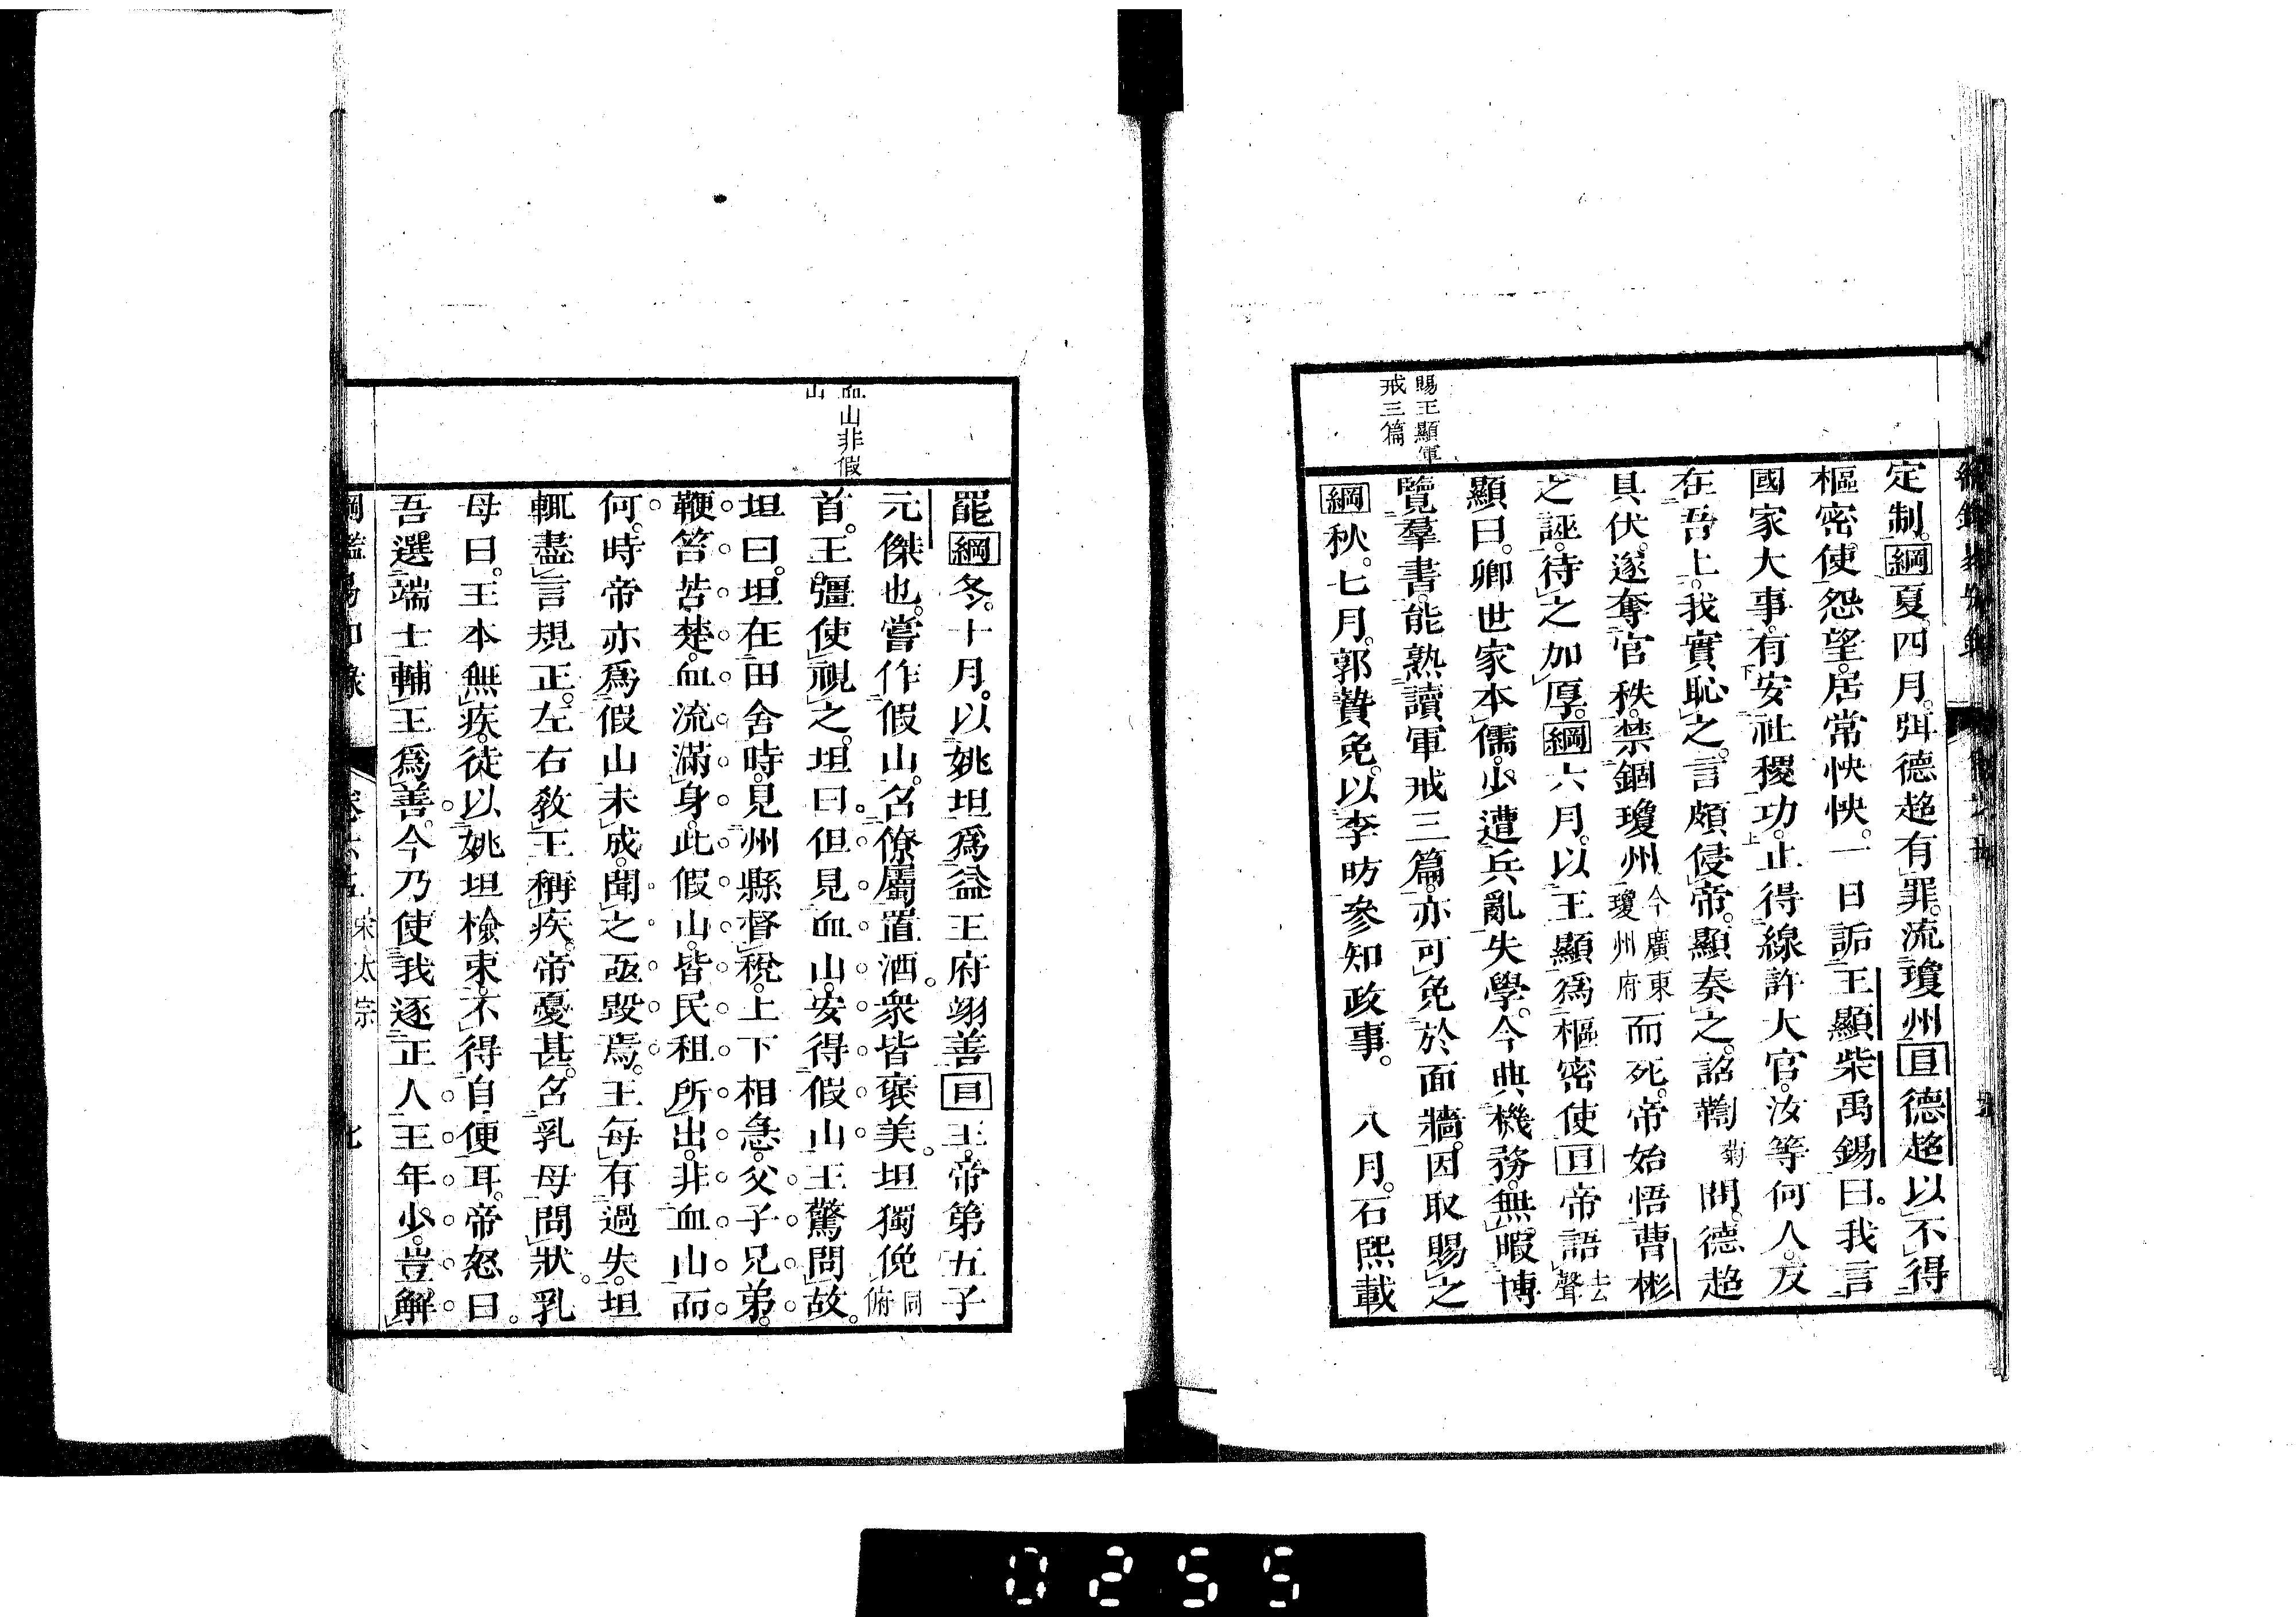 賜王顯軍
戒三篇
定制。綱夏。四月。弭德超有罪。流瓊州目德超以不得
樞密使怨望。居常怏怏。一日詬王顯柴禹錫曰。我言
國家大事。有安社稷功。止得線許大官。汝等何人。反
在吾上。我實恥之。言頗侵帝。顯奏之。詔鞫菊問。德超
具伏。遂奪官秩。禁錮瓊州今廣東瓊州府而死。帝始悟曹彬
之誣。待之加厚。綱六月。以王顯爲樞密使目帝語去聲
顯曰。卿世家本儒。少遭兵亂失學。今典機務。無暇博
覽羣書。能熟讀軍戒三篇。亦可免於面牆。因取賜之
綱秋。七月。郭贄免。以李昉參知政事。　八月。石熙載
血山非假
山
罷綱冬。十月。以姚坦爲益王府翊善目王。帝第五子
元傑也。嘗作假山。召僚屬置酒。衆皆褒美。坦獨俛同俯
首。王彊使視之。坦曰。但見血山。安得假山。王驚問故。
坦曰。坦在田舍時。見州縣督稅。上下相急。父子兄弟。
鞭笞苦楚。血流滿身。此假山。皆民租所出。非血山而
何。時帝亦爲假山未成。聞之亟毀焉。王每有過失。坦
輒盡言規正。左右敎王稱疾。帝憂甚。召乳母問狀。乳
母曰。王本無疾。徒以姚坦檢束。不得自便耳。帝怒曰。
吾選端士輔王爲善。今乃使我逐正人。王年少。豈解
綱鑑易知錄　卷六十五　宋太宗　七